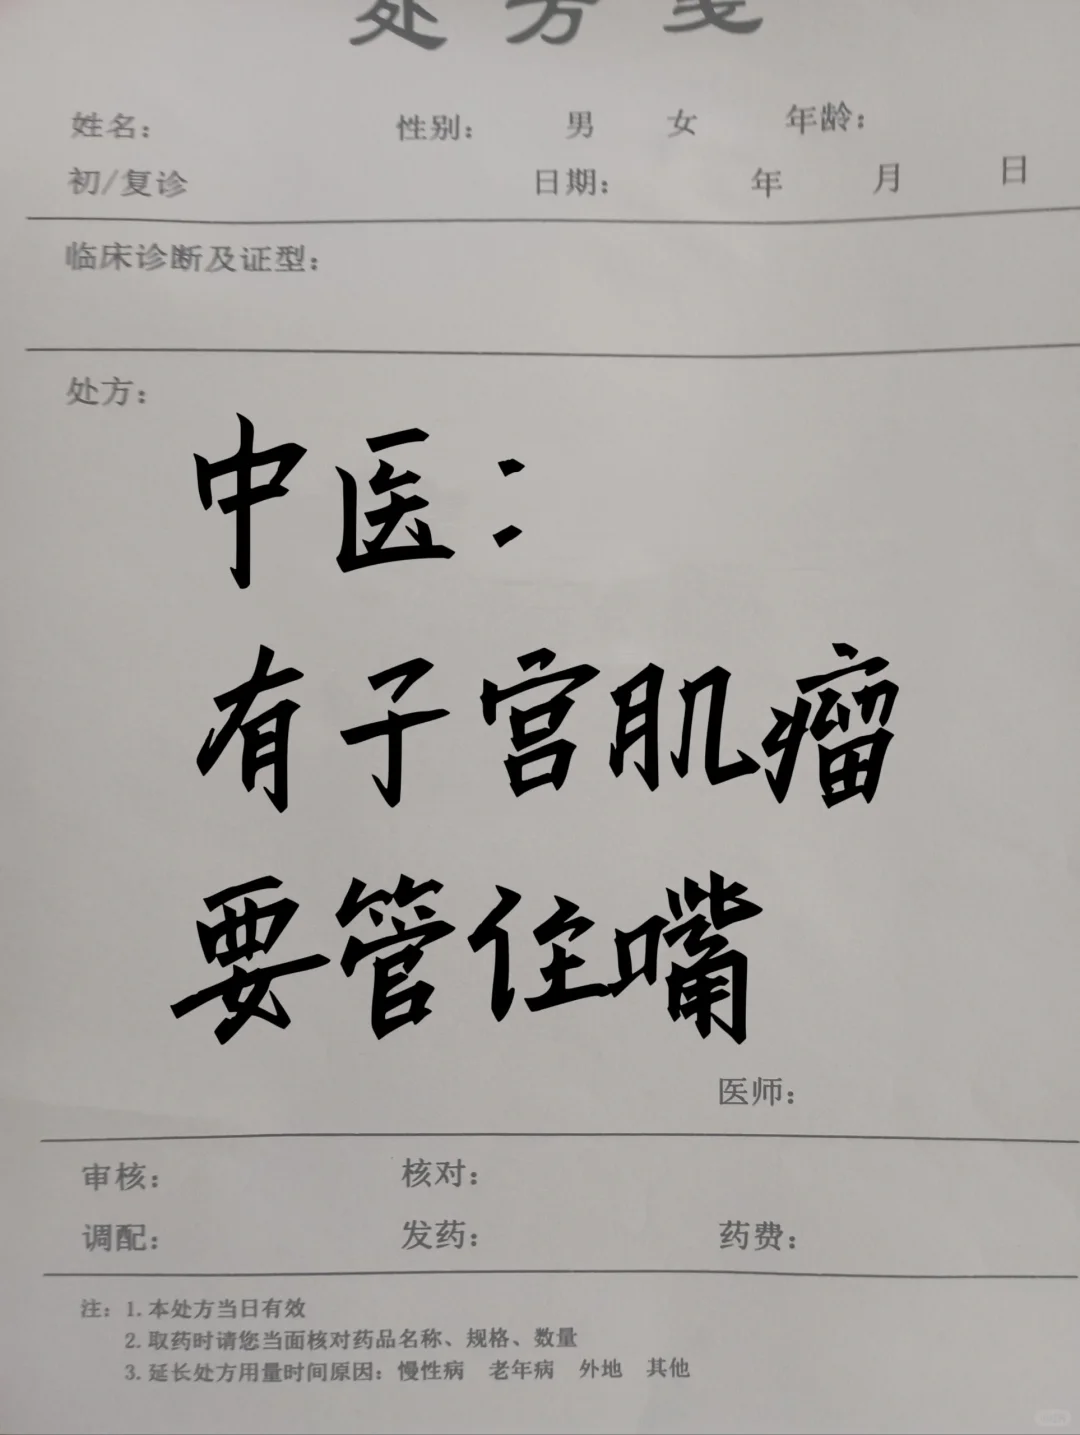 处方笺
姓名： 性别： 男 女 年龄：
初/复诊 日期： 年 月 日
临床诊断及证型：
处方：
中医：
有子宫肌瘤
要管住嘴
医师：
审核： 核对：
调配： 发药： 药费：
注：1.本处方当日有效
2.取药时请您当面核对药品名称、规格、数量
3.延长处方用量时间原因：慢性病 老年病 外地 其他